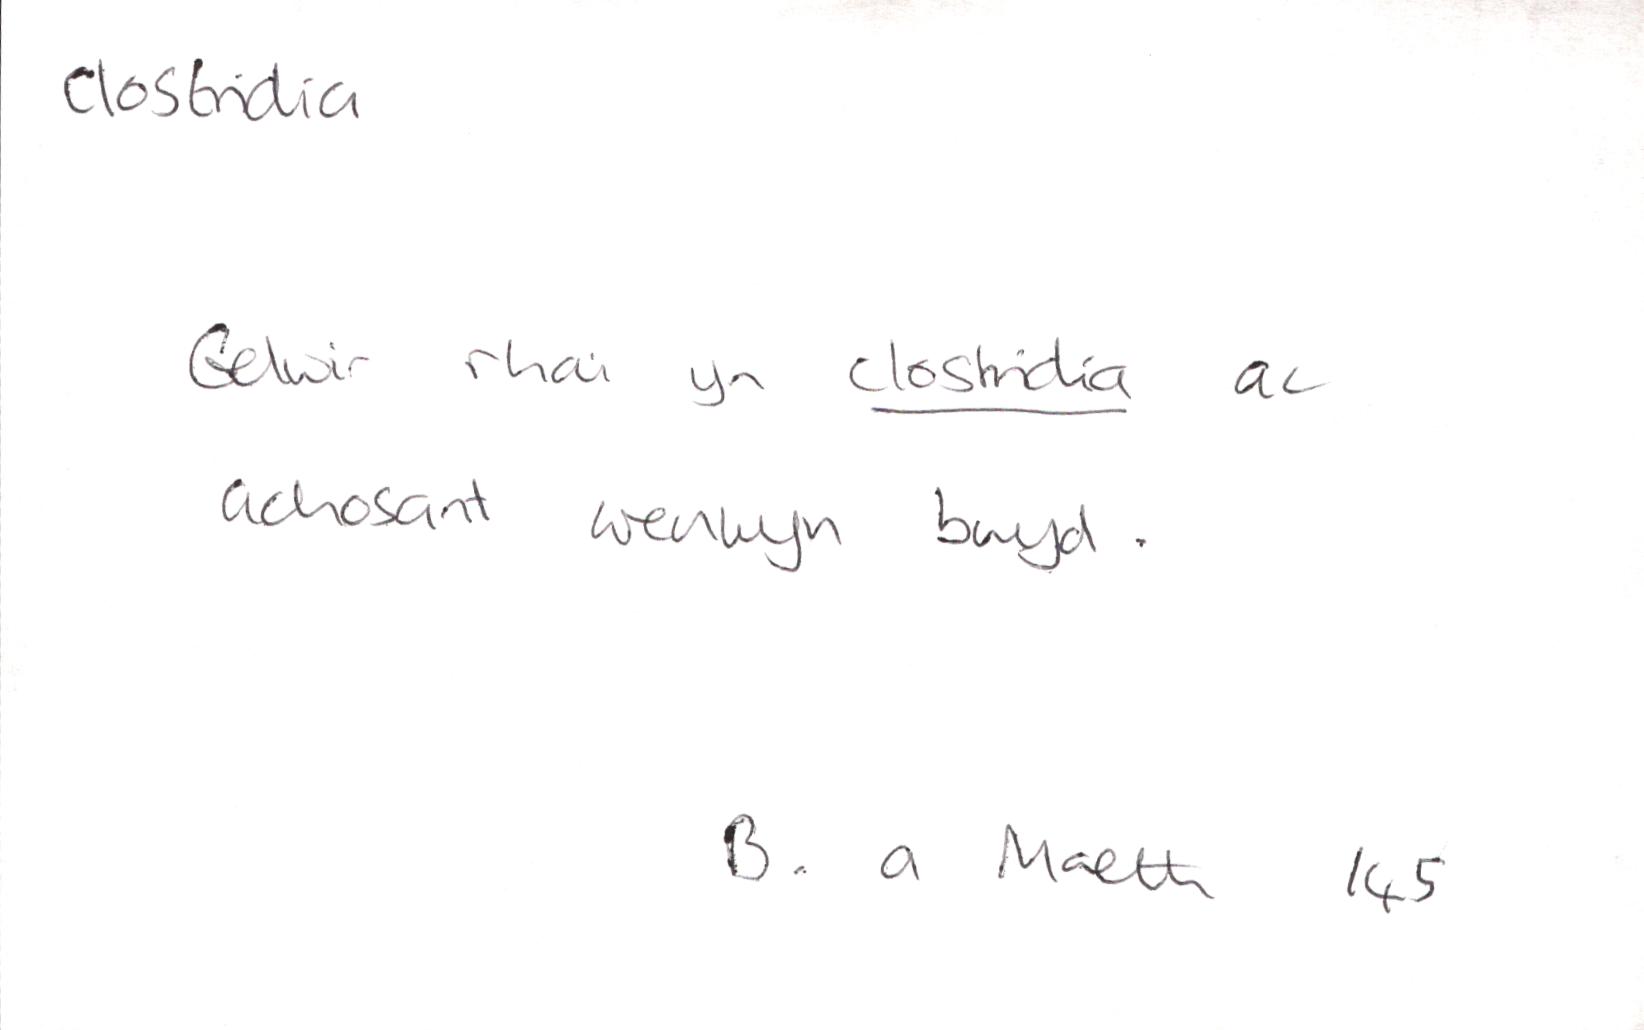 Clostridia
Gelwir rhai yn clostridia ac
achosant wenwyn bwyd.
B. a Maeth 145